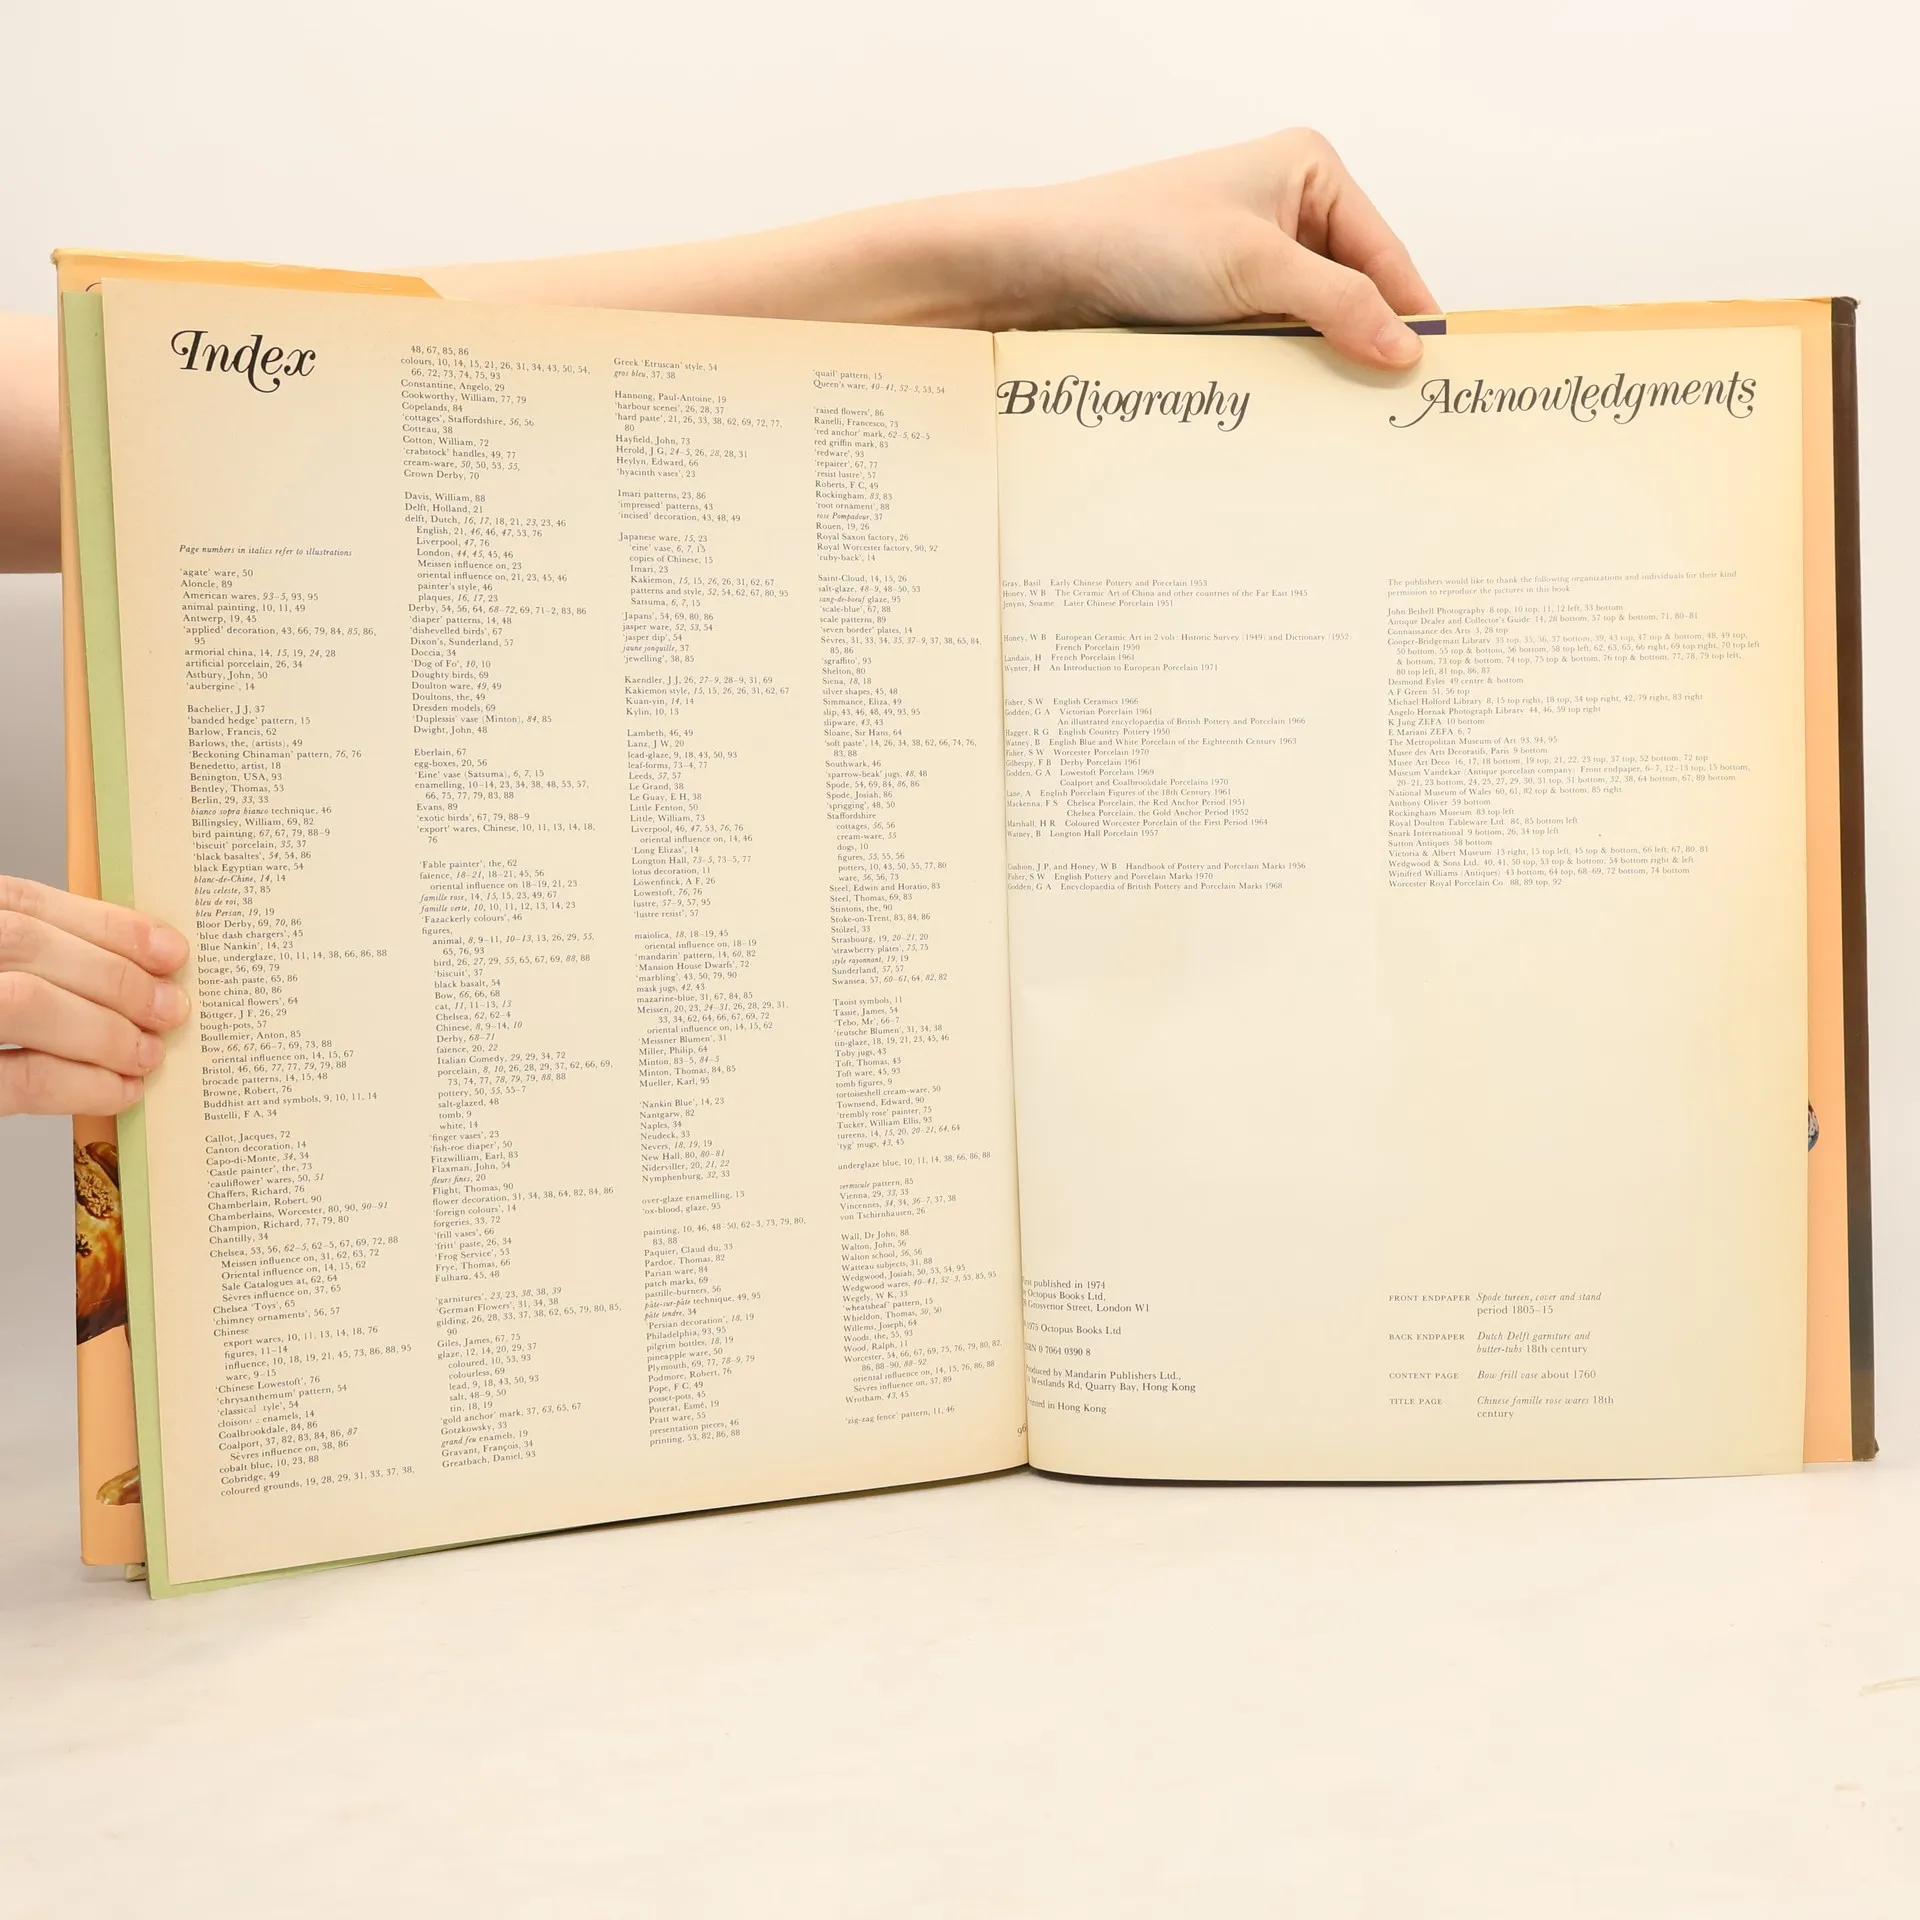 Index
Page numbers in italics refer to illustrations
'agate' ware, 50
Aloncle, 89
American wares, 93–5, 93, 95
animal painting, 10, 11, 49
Antwerp, 19, 45
'applied' decoration, 43, 66, 79, 84, 85, 86,
95
armorial china, 14, 15, 19, 24, 28
artificial porcelain, 26, 34
Astbury, John, 50
'aubergine', 14
Bachelier, J J, 37
'banded hedge' pattern, 15
Barlow, Francis, 62
Barlows, the, (artists), 49
'Beckoning Chinaman' pattern, 76, 76
Benedetto, artist, 18
Benington, USA, 93
Bentley, Thomas, 53
Berlin, 29, 33, 33
bianco sopra bianco technique, 46
Billingsley, William, 69, 82
bird painting, 67, 67, 79, 88–9
'biscuit' porcelain, 35, 37
'black basaltes', 54, 54, 86
black Egyptian ware, 54
blanc-de-Chine, 14, 14
bleu celeste, 37, 85
bleu de roi, 38
bleu Persan, 19, 19
Bloor Derby, 69, 70, 86
'blue dash chargers', 45
'Blue Nankin', 14, 23
blue, underglaze, 10, 11, 14, 38, 66, 86, 88
bocage, 56, 69, 79
bone-ash paste, 65, 86
bone china, 80, 86
'botanical flowers', 64
Böttger, J F, 26, 29
bough-pots, 57
Boullemier, Anton, 85
Bow, 66, 67, 66–7, 69, 73, 88
oriental influence on, 14, 15, 67
Bristol, 46, 66, 77, 77, 79, 79, 88
brocade patterns, 14, 15, 48
Browne, Robert, 76
Buddhist art and symbols, 9, 10, 11, 14
Bustelli, F A, 34
Callot, Jacques, 72
Canton decoration, 14
Capo-di-Monte, 34, 34
'Castle painter', the, 73
'cauliflower' wares, 50, 51
Chaffers, Richard, 76
Chamberlain, Robert, 90
Chamberlains, Worcester, 80, 90, 90–91
Champion, Richard, 77, 79, 80
Chantilly, 34
Chelsea, 53, 56, 62–5, 62–5, 67, 69, 72, 88
Meissen influence on, 31, 62, 63, 72
Oriental influence on, 14, 15, 62
Sale Catalogues at, 62, 64
Sèvres influence on, 37, 65
Chelsea 'Toys', 65
'chimney ornaments', 56, 57
Chinese
export wares, 10, 11, 13, 14, 18, 76
figures, 11–14
influence, 10, 18, 19, 21, 45, 73, 86, 88, 95
ware, 9–15
'Chinese Lowestoft', 76
'chrysanthemum' pattern, 54
'classical style', 54
enamels, 14
Coalbrookdale, 84, 86
Coalport, 37, 82, 83, 84, 86, 87
Sèvres influence on, 38, 86
cobalt blue, 10, 23, 88
Cobridge, 49
coloured grounds, 19, 28, 29, 31, 33, 37, 38,
48, 67, 85, 86
colours, 10, 14, 15, 21, 26, 31, 34, 43, 50, 54,
66, 72, 73, 74, 75, 93
Constantine, Angelo, 29
Cookworthy, William, 77, 79
Copelands, 84
'cottages', Staffordshire, 56, 56
Cotteau, 38
Cotton, William, 72
'crabstock' handles, 49, 77
cream-ware, 50, 50, 53, 55,
Crown Derby, 70
Davis, William, 88
Delft, Holland, 21
delft, Dutch, 16, 17, 18, 21, 23, 23, 46
English, 21, 46, 46, 47, 53, 76
Liverpool, 47, 76
London, 44, 45, 45, 46
Meissen influence on, 23
oriental influence on, 21, 23, 45, 46
painter's style, 46
plaques, 16, 17, 23
Derby, 54, 56, 64, 68–72, 69, 71–2, 83, 86
'diaper' patterns, 14, 48
'dishevelled birds', 67
Dixon's, Sunderland, 57
Doccia, 34
'Dog of Fo', 10, 10
Doughty birds, 69
Doulton ware, 49, 49
Doultons, the, 49
Dresden models, 69
'Duplessis' vase (Minton), 84, 85
Dwight, John, 48
Eberlain, 67
egg-boxes, 20, 56
'Eine' vase (Satsuma), 6, 7, 15
enamelling, 10–14, 23, 34, 38, 48, 53, 57,
66, 75, 77, 79, 83, 88
Evans, 89
'exotic birds', 67, 79, 88–9
'export' wares, Chinese, 10, 11, 13, 14, 18,
76
'Fable painter', the, 62
faïence, 18–21, 18–21, 45, 56
oriental influence on 18–19, 21, 23
famille rose, 14, 15, 15, 23, 49, 67
famille verte, 10, 10, 11, 12, 13, 14, 23
'Fazackerly colours', 46
figures,
animal, 8, 9–11, 10–13, 13, 26, 29, 55,
65, 76, 93
bird, 26, 27, 29, 55, 65, 67, 69, 88, 88
'biscuit', 37
black basalt, 54
Bow, 66, 66, 68
cat, 11, 11–13, 13
Chelsea, 62, 62–4
Chinese, 8, 9–14, 10
Derby, 68–71
faïence, 20, 22
Italian Comedy, 29, 29, 34, 72
porcelain, 8, 10, 26, 28, 29, 37, 62, 66, 69,
73, 74, 77, 78, 79, 79, 88, 88
pottery, 50, 55, 55–7
salt-glazed, 48
tomb, 9
white, 14
'finger vases', 23
'fish-roe diaper', 50
Fitzwilliam, Earl, 83
Flaxman, John, 54
fleurs fines, 20
Flight, Thomas, 90
flower decoration, 31, 34, 38, 64, 82, 84, 86
'foreign colours', 14
forgeries, 33, 72
'frill vases', 66
'fritt' paste, 26, 34
'Frog Service', 53
Frye, Thomas, 66
Fulham, 45, 48
'garnitures', 23, 23, 38, 38, 39
'German Flowers', 31, 34, 38
gilding, 26, 28, 33, 37, 38, 62, 65, 79, 80, 85,
90
Giles, James, 67, 75
glaze, 12, 14, 20, 29, 37
coloured, 10, 53, 93
colourless, 69
lead, 9, 18, 43, 50, 93
salt, 48–9, 50
tin, 18, 19
'gold anchor' mark, 37, 63, 65, 67
Gotzkowsky, 33
grand feu enamels, 19
Gravant, François, 34
Greatbach, Daniel, 93
Greek 'Etruscan' style, 54
gros bleu, 37, 38
Hannong, Paul-Antoine, 19
'harbour scenes', 26, 28, 37
'hard paste', 21, 26, 33, 38, 62, 69, 72, 77,
80
Hayfield, John, 73
Herold, J G, 24–5, 26, 28, 28, 31
Heylyn, Edward, 66
'hyacinth vases', 23
Imari patterns, 23, 86
'impressed' patterns, 43
'incised' decoration, 43, 48, 49
Japanese ware, 15, 23
'eine' vase, 6, 7, 15
copies of Chinese, 15
Imari, 23
Kakiemon, 15, 15, 26, 26, 31, 62, 67
patterns and style, 52, 54, 62, 67, 80, 95
Satsuma, 6, 7, 15
'Japans', 54, 69, 80, 86
jasper ware, 52, 53, 54
'jasper dip', 54
jaune jonquille, 37
'jewelling', 38, 85
Kaendler, J J, 26, 27–9, 28–9, 31, 69
Kakiemon style, 15, 15, 26, 26, 31, 62, 67
Kuan-yin, 14, 14
Kylin, 10, 13
Lambeth, 46, 49
Lanz, J W, 20
lead-glaze, 9, 18, 43, 50, 93
leaf-forms, 73–4, 77
Leeds, 57, 57
Le Grand, 38
Le Guay, E H, 38
Little Fenton, 50
Little, William, 73
Liverpool, 46, 47, 53, 76, 76
oriental influence on, 14, 46
'Long Elizas', 14
Longton Hall, 73–5, 73–5, 77
lotus decoration, 11
Löwenfinck, A F, 26
Lowestoft, 76, 76
lustre, 57–9, 57, 95
'lustre resist', 57
maiolica, 18, 18–19, 45
oriental influence on, 18–19
'mandarin' pattern, 14, 60, 82
'Mansion House Dwarfs', 72
'marbling', 43, 50, 79, 90
mask jugs, 42, 43
mazarine-blue, 31, 67, 84, 85
Meissen, 20, 23, 24–31, 26, 28, 29, 31,
33, 34, 62, 64, 66, 67, 69, 72
oriental influence on, 14, 15, 62
'Meissner Blumen', 31
Miller, Philip, 64
Minton, 83–5, 84–5
Minton, Thomas, 84, 85
Mueller, Karl, 95
'Nankin Blue', 14, 23
Nantgarw, 82
Naples, 34
Neudeck, 33
Nevers, 18, 19, 19
New Hall, 80, 80–81
Niderviller, 20, 21, 22
Nymphenburg, 32, 33
over-glaze enamelling, 13
'ox-blood, glaze, 95
painting, 10, 46, 48–50, 62–3, 73, 79, 80,
83, 88
Paquier, Claud du, 33
Pardoe, Thomas, 82
Parian ware, 84
patch marks, 69
pastille-burners, 56
pâte-sur-pâte technique, 49, 95
pâte tendre, 34
'Persian decoration', 18, 19
Philadelphia, 93, 95
pilgrim bottles, 18, 19
pineapple ware, 50
Plymouth, 69, 77, 78–9, 79
Podmore, Robert, 76
Pope, F C, 49
posset-pots, 45
Poterat, Esmé, 19
Pratt ware, 55
presentation pieces, 46
printing, 53, 82, 86, 88
'quail' pattern, 15
Queen's ware, 40–41, 52–3, 53, 54
'raised flowers', 86
Ranelli, Francesco, 73
'red anchor' mark, 62–5, 62–5
red griffin mark, 83
'redware', 93
'repairer', 67, 77
'resist lustre', 57
Roberts, F C, 49
Rockingham, 83, 83
'root ornament', 88
rose Pompadour, 37
Rouen, 19, 26
Royal Saxon factory, 26
Royal Worcester factory, 90, 92
'ruby-back', 14
Saint-Cloud, 14, 15, 26
salt-glaze, 48–9, 48–50, 53
sang-de-boeuf glaze, 95
'scale-blue', 67, 88
scale patterns, 89
'seven border' plates, 14
Sèvres, 31, 33, 34, 35, 37–9, 37, 38, 65, 84,
85, 86
'sgraffito', 93
Shelton, 80
Siena, 18, 18
silver shapes, 45, 48
Simmance, Eliza, 49
slip, 43, 46, 48, 49, 93, 95
slipware, 43, 43
Sloane, Sir Hans, 64
'soft paste', 14, 26, 34, 38, 62, 66, 74, 76,
83, 88
Southwark, 46
'sparrow-beak' jugs, 48, 48
Spode, 54, 69, 84, 86, 86
Spode, Josiah, 86
'sprigging', 48, 50
Staffordshire
cottages, 56, 56
cream-ware, 55
dogs, 10
figures, 55, 55, 56
potters, 10, 43, 50, 55, 77, 80
ware, 56, 56, 73
Steel, Edwin and Horatio, 83
Steel, Thomas, 69, 83
Stintons, the, 90
Stoke-on-Trent, 83, 84, 86
Stölzel, 33
Strasbourg, 19, 20–21, 20
'strawberry plates', 75, 75
style rayonnant, 19, 19
Sunderland, 57, 57
Swansea, 57, 60–61, 64, 82, 82
Taoist symbols, 11
Tassie, James, 54
'Tebo, Mr', 66–7
'teutsche Blumen', 31, 34, 38
tin-glaze, 18, 19, 21, 23, 45, 46
Toby jugs, 43
Toft, Thomas, 43
Toft ware, 45, 93
tomb figures, 9
tortoiseshell cream-ware, 50
Townsend, Edward, 90
'trembly rose' painter, 75
Tucker, William Ellis, 93
tureens, 14, 15, 20, 20–21, 64, 64
'tyg' mugs, 43, 45
underglaze blue, 10, 11, 14, 38, 66, 86, 88
vermicule pattern, 85
Vienna, 29, 33, 33
Vincennes, 34, 34, 36–7, 37, 38
von Tschirnhausen, 26
Wall, Dr John, 88
Walton, John, 56
Walton school, 56, 56
Watteau subjects, 31, 88
Wedgwood, Josiah, 50, 53, 54, 95
Wedgwood wares, 40–41, 52–3, 53, 85, 95
Wegely, W K, 33
'wheatsheaf' pattern, 15
Whieldon, Thomas, 50, 50
Willems, Joseph, 64
Woods, the, 55, 93
Wood, Ralph, 11
Worcester, 54, 66, 67, 69, 75, 76, 79, 80, 82,
86, 88–90, 88–92
oriental influence on, 14, 15, 76, 86, 88
Sèvres influence on, 37, 89
Wrotham, 43, 45
'zig-zag fence' pattern, 11, 46
96
Bibliography
Gray, Basil Early Chinese Pottery and Porcelain 1953
Honey, W B The Ceramic Art of China and other countries of the Far East 1945
Jenyns, Soame Later Chinese Porcelain 1951
Honey, W B European Ceramic Art in 2 vols: Historic Survey (1949) and Dictionary (1952)
French Porcelain 1950
Landais, H French Porcelain 1961
Wynter, H An Introduction to European Porcelain 1971
Fisher, S W English Ceramics 1966
Godden, G A Victorian Porcelain 1961
An illustrated encyclopaedia of British Pottery and Porcelain 1966
Hagger, R G English Country Pottery 1950
Watney, B English Blue and White Porcelain of the Eighteenth Century 1963
Fisher, S W Worcester Porcelain 1970
Gilhespy, F B Derby Porcelain 1961
Godden, G A Lowestoft Porcelain 1969
Coalport and Coalbrookdale Porcelains 1970
Lane, A English Porcelain Figures of the 18th Century 1961
Mackenna, F S Chelsea Porcelain, the Red Anchor Period 1951
Chelsea Porcelain, the Gold Anchor Period 1952
Marshall, H R Coloured Worcester Porcelain of the First Period 1964
Watney, B Longton Hall Porcelain 1957
Cushion, J P, and Honey, W B Handbook of Pottery and Porcelain Marks 1956
Fisher, S W English Pottery and Porcelain Marks 1970
Godden, G A Encyclopaedia of British Pottery and Porcelain Marks 1968
First published in 1974
Octopus Books Ltd,
Grosvenor Street, London W1
1975 Octopus Books Ltd
ISBN 0 7064 0390 8
Produced by Mandarin Publishers Ltd.,
Westlands Rd, Quarry Bay, Hong Kong
Printed in Hong Kong
Acknowledgments
The publishers would like to thank the following organizations and individuals for their kind
permission to reproduce the pictures in this book
John Bethell Photography 8 top, 10 top, 11, 12 left, 33 bottom
Antique Dealer and Collector's Guide 14, 28 bottom, 57 top & bottom, 71, 80–81
Connaissance des Arts 3, 28 top
Cooper-Bridgeman Library 33 top, 35, 36, 37 bottom, 39, 43 top, 47 top & bottom, 48, 49 top,
50 bottom, 55 top & bottom, 56 bottom, 58 top left, 62, 63, 65, 66 right, 69 top right, 70 top left
& bottom, 73 top & bottom, 74 top, 75 top & bottom, 76 top & bottom, 77, 78, 79 top left,
80 top left, 81 top, 86, 87
Desmond Eyles 49 centre & bottom
A F Green 51, 56 top
Michael Holford Library 8, 15 top right, 18 top, 34 top right, 42, 79 right, 83 right
Angelo Hornak Photograph Library 44, 46, 59 top right
K Jung ZEFA 10 bottom
E Mariani ZEFA 6, 7
The Metropolitan Museum of Art 93, 94, 95
Musee des Arts Decoratifs, Paris 9 bottom
Musee Art Deco 16, 17, 18 bottom, 19 top, 21, 22, 23 top, 37 top, 52 bottom, 72 top
Museum Vandekar (Antique porcelain company) Front endpaper, 6–7, 12–13 top, 15 bottom,
20–21, 23 bottom, 24, 25, 27, 29, 30, 31 top, 31 bottom, 32, 38, 64 bottom, 67, 89 bottom
National Museum of Wales 60, 61, 82 top & bottom, 85 right
Anthony Oliver 59 bottom
Rockingham Museum 83 top left
Royal Doulton Tableware Ltd. 84, 85 bottom left
Snark International 9 bottom, 26, 34 top left
Sutton Antiques 58 bottom
Victoria & Albert Museum 13 right, 15 top left, 45 top & bottom, 66 left, 67, 80, 81
Wedgwood & Sons Ltd. 40, 41, 50 top, 53 top & bottom, 54 bottom right & left
Winifred Williams (Antiques) 43 bottom, 64 top, 68–69, 72 bottom, 74 bottom
Worcester Royal Porcelain Co. 88, 89 top, 92
FRONT ENDPAPER Spode tureen, cover and stand
period 1805–15
BACK ENDPAPER Dutch Delft garniture and
butter-tubs 18th century
CONTENT PAGE Bow frill vase about 1760
TITLE PAGE Chinese famille rose wares 18th
century